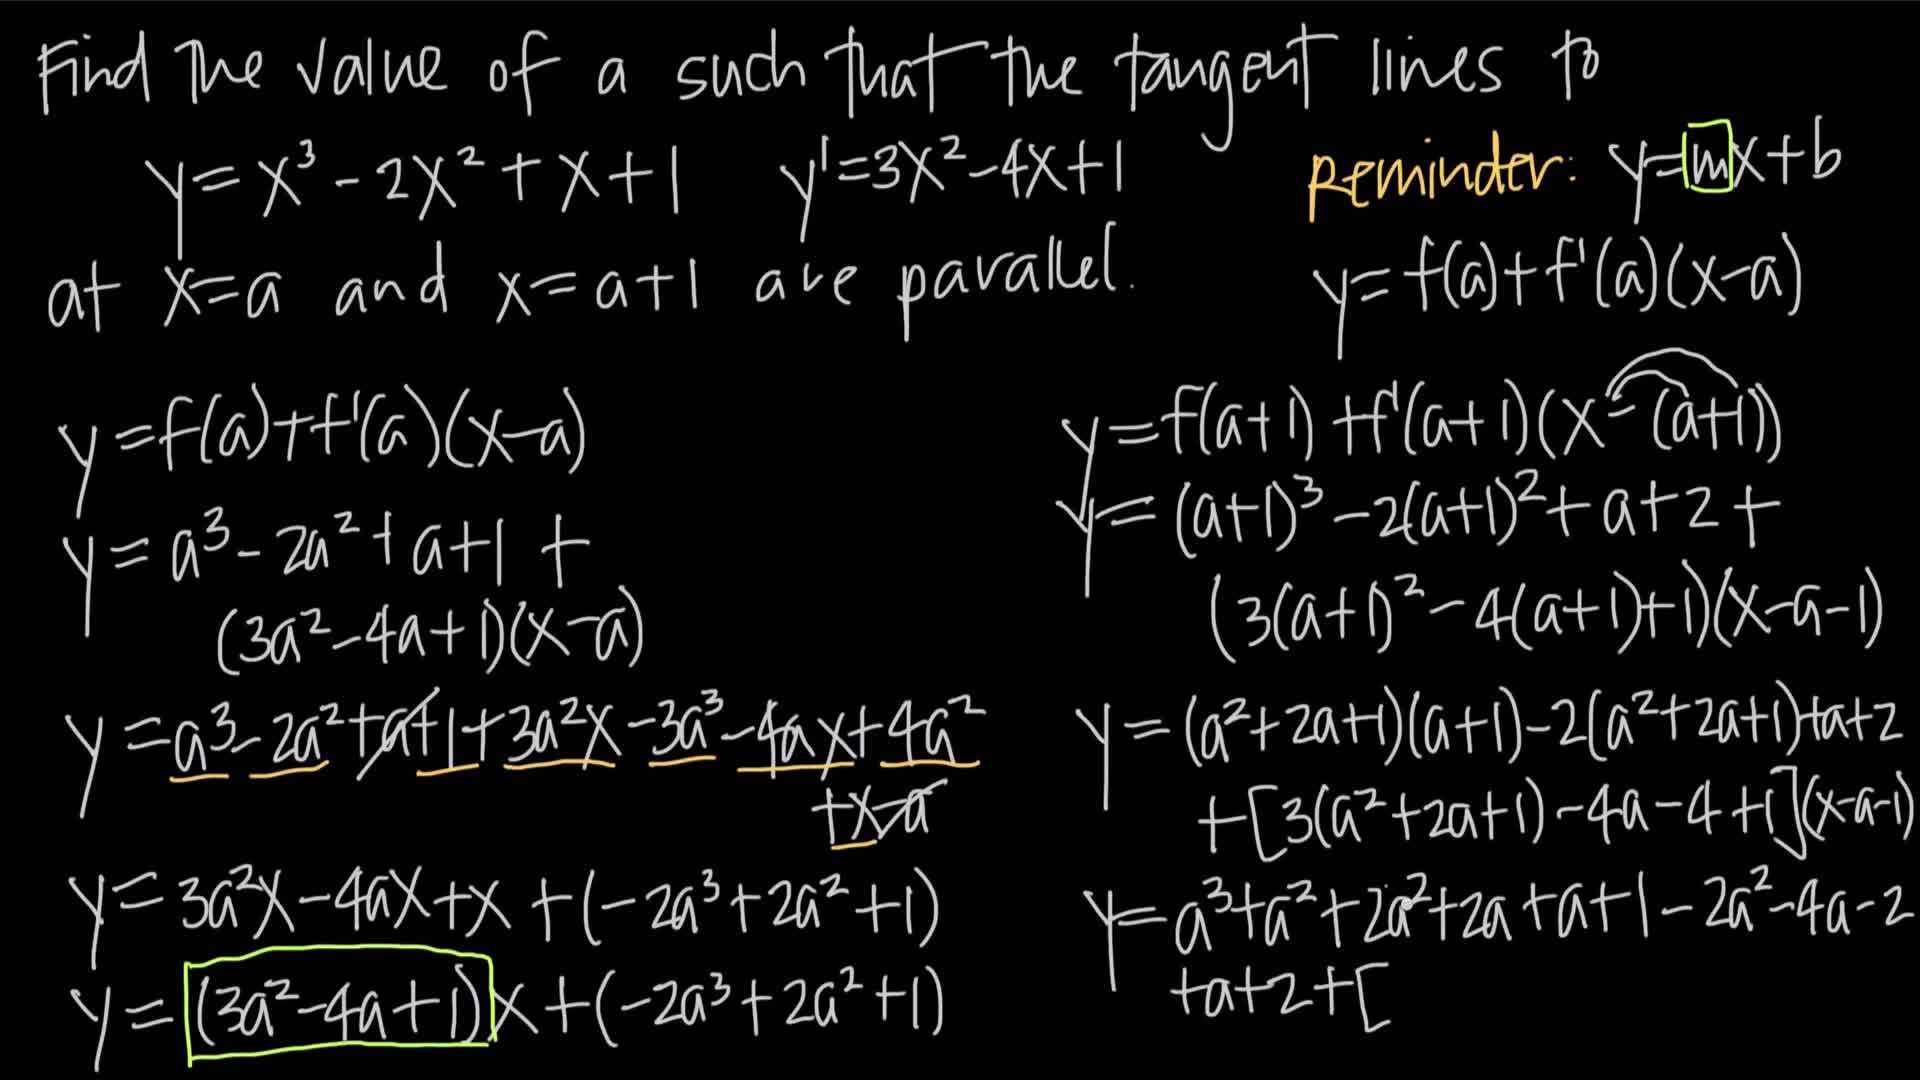 Find the value of a such that the tangent lines to
y=x³-2x²+x+1 y'=3x²-4x+1
reminder: y=mx+b
at x=a and x=a+1 are parallel.
y=f(a)+f'(a)(x-a)
y=f(a)+f'(a)(x-a)
y=a³-2a²+a+1+
(3a²-4a+1)(x-a)
y=a³-2a²+a+1+3a²x-3a³-4ax+4a²
+x-a
y=3a²x-4ax+x+(-2a³+2a²+1)
y=(3a²-4a+1)x+(-2a³+2a²+1)
y=f(a+1)+f'(a+1)(x-(a+1))
y=(a+1)³-2(a+1)²+a+2+
(3(a+1)²-4(a+1)+1)(x-a-1)
y=(a²+2a+1)(a+1)-2(a²+2a+1)+a+2
+[3(a²+2a+1)-4a-4+1](x-a-1)
y=a³+a²+2a²+2a+a+1-2a²-4a-2
+a+2+[